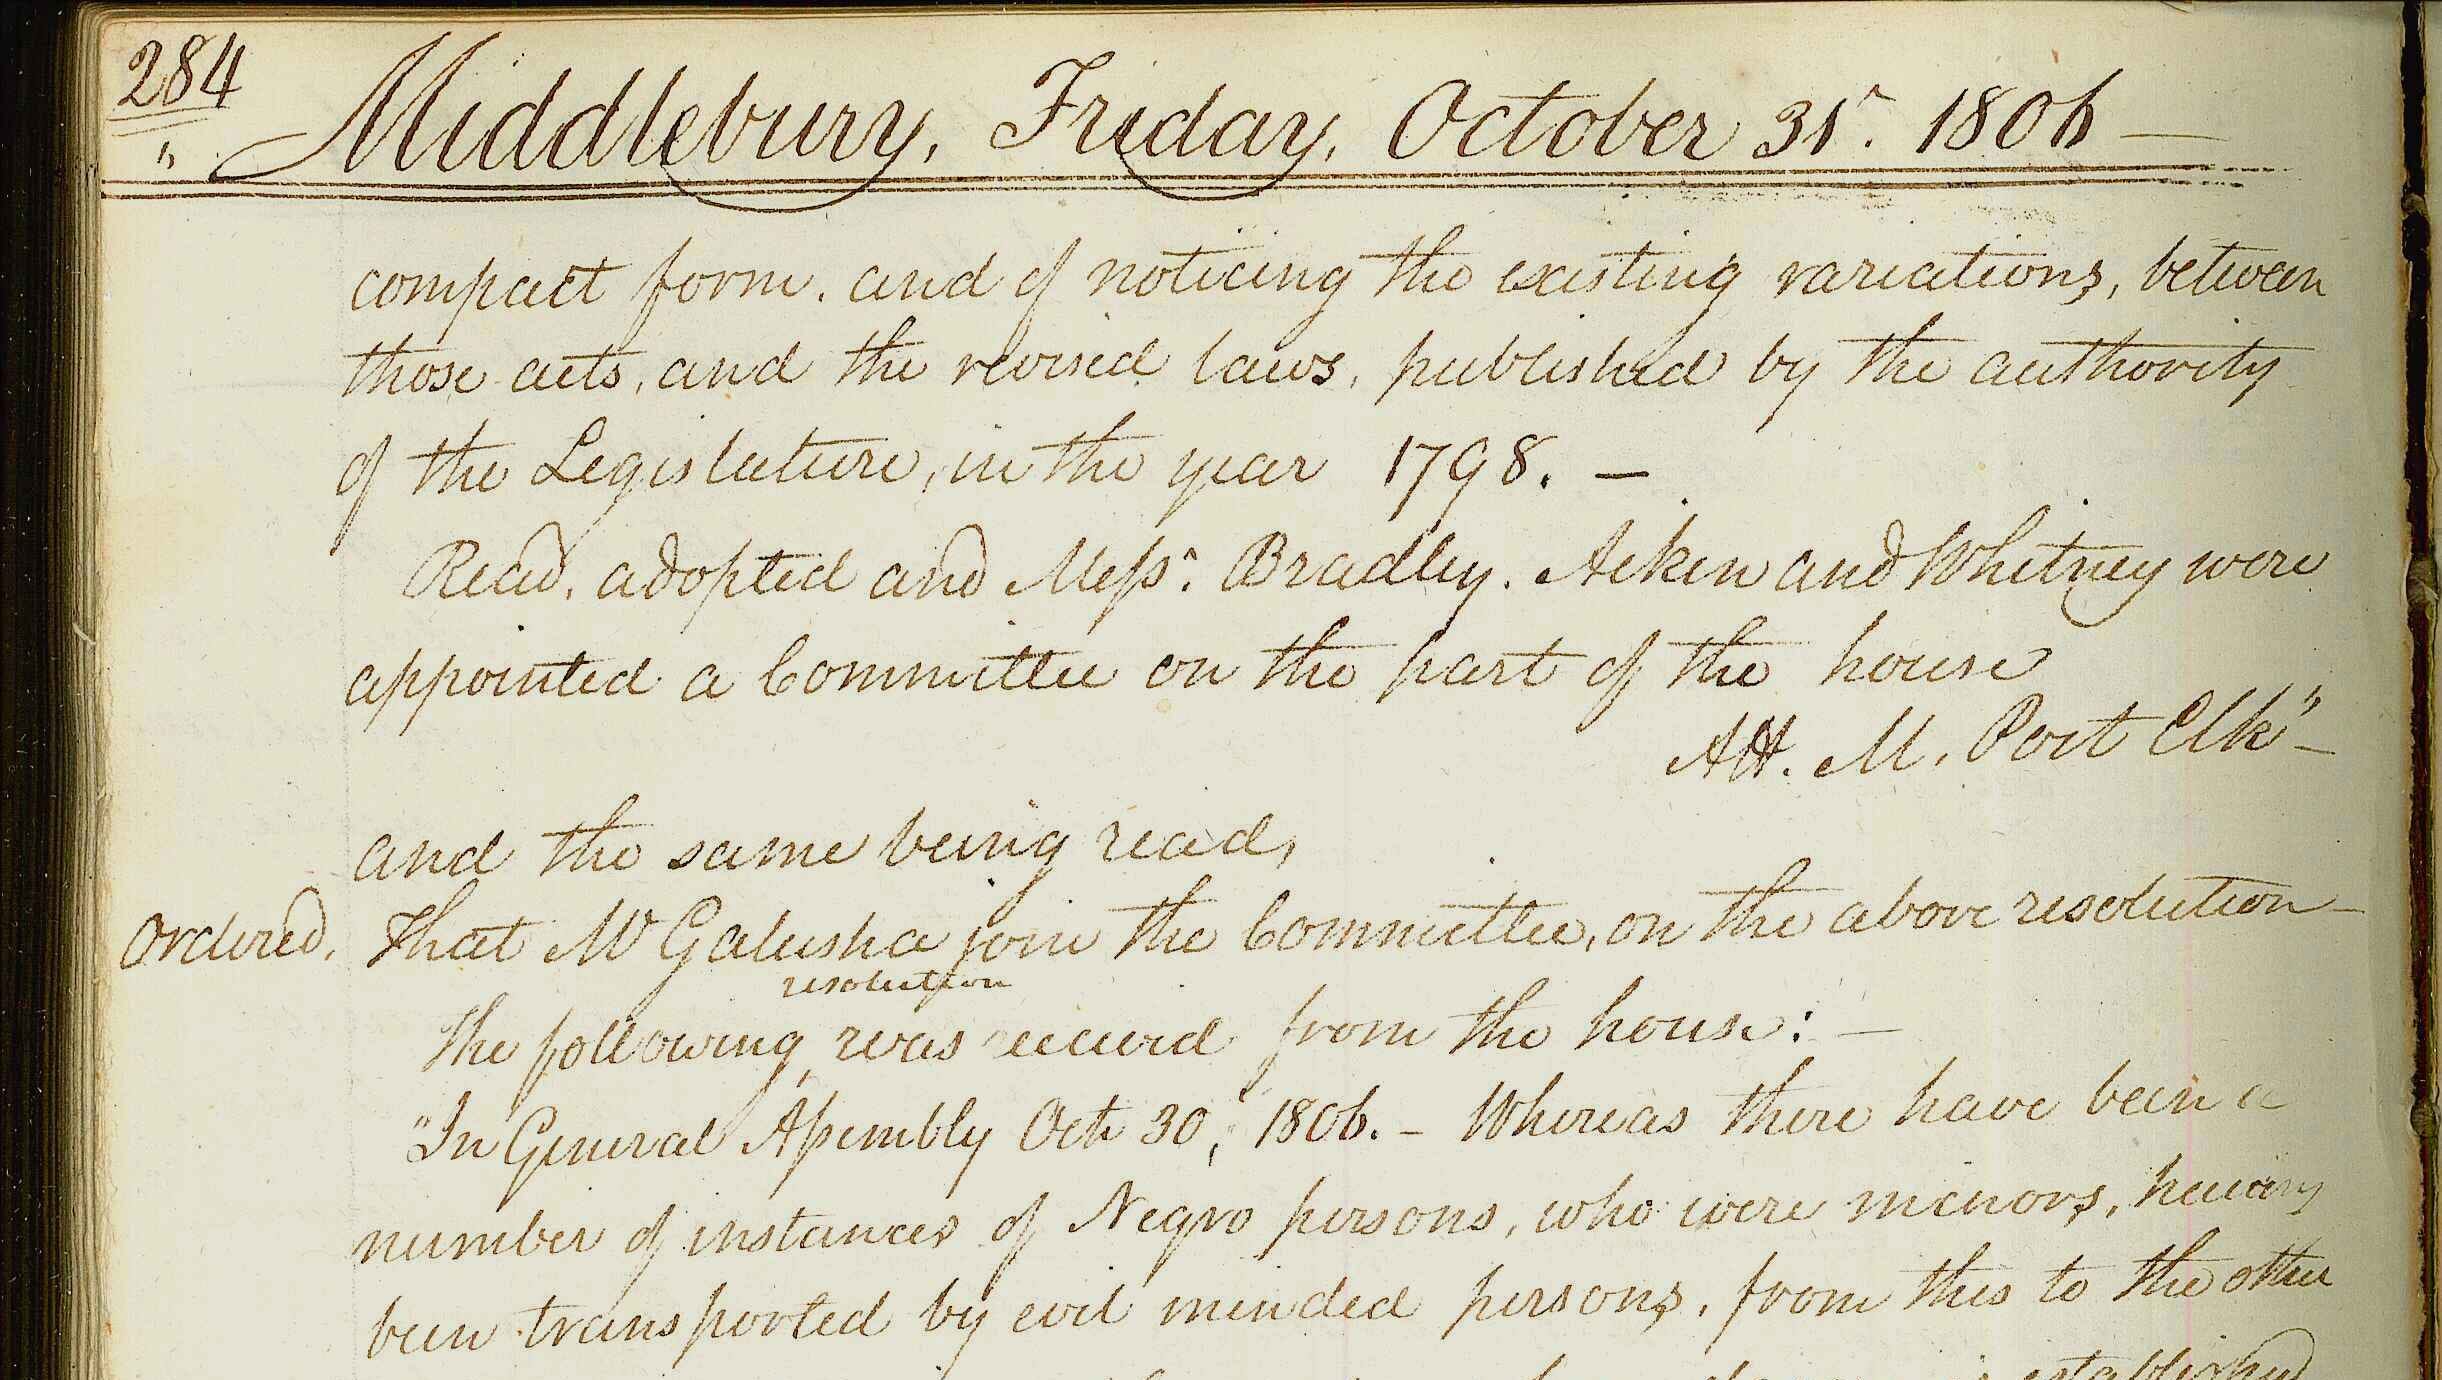 284
" Middlebury, Friday, October 31st. 1806 —
compact form. and of noticing the existing variations, between
those acts, and the revised laws, published by the authority
of the Legislature, in the year 1798. —
Read, adopted and Messrs. Bradley. Aiken and Whitney were
appointed a Committee on the part of the house
Att. M. Post Clk" —
and the same being read,
Ordered, That Mr Galusha join the Committee, on the above resolution —
resolution
The following ‸ was received from the house: —
"In General Assembly Oct. 30, 1806. — Whereas there have been a
number of instances of Negro persons, who were minors, having
been transported by evil minded persons, from this to the other
established